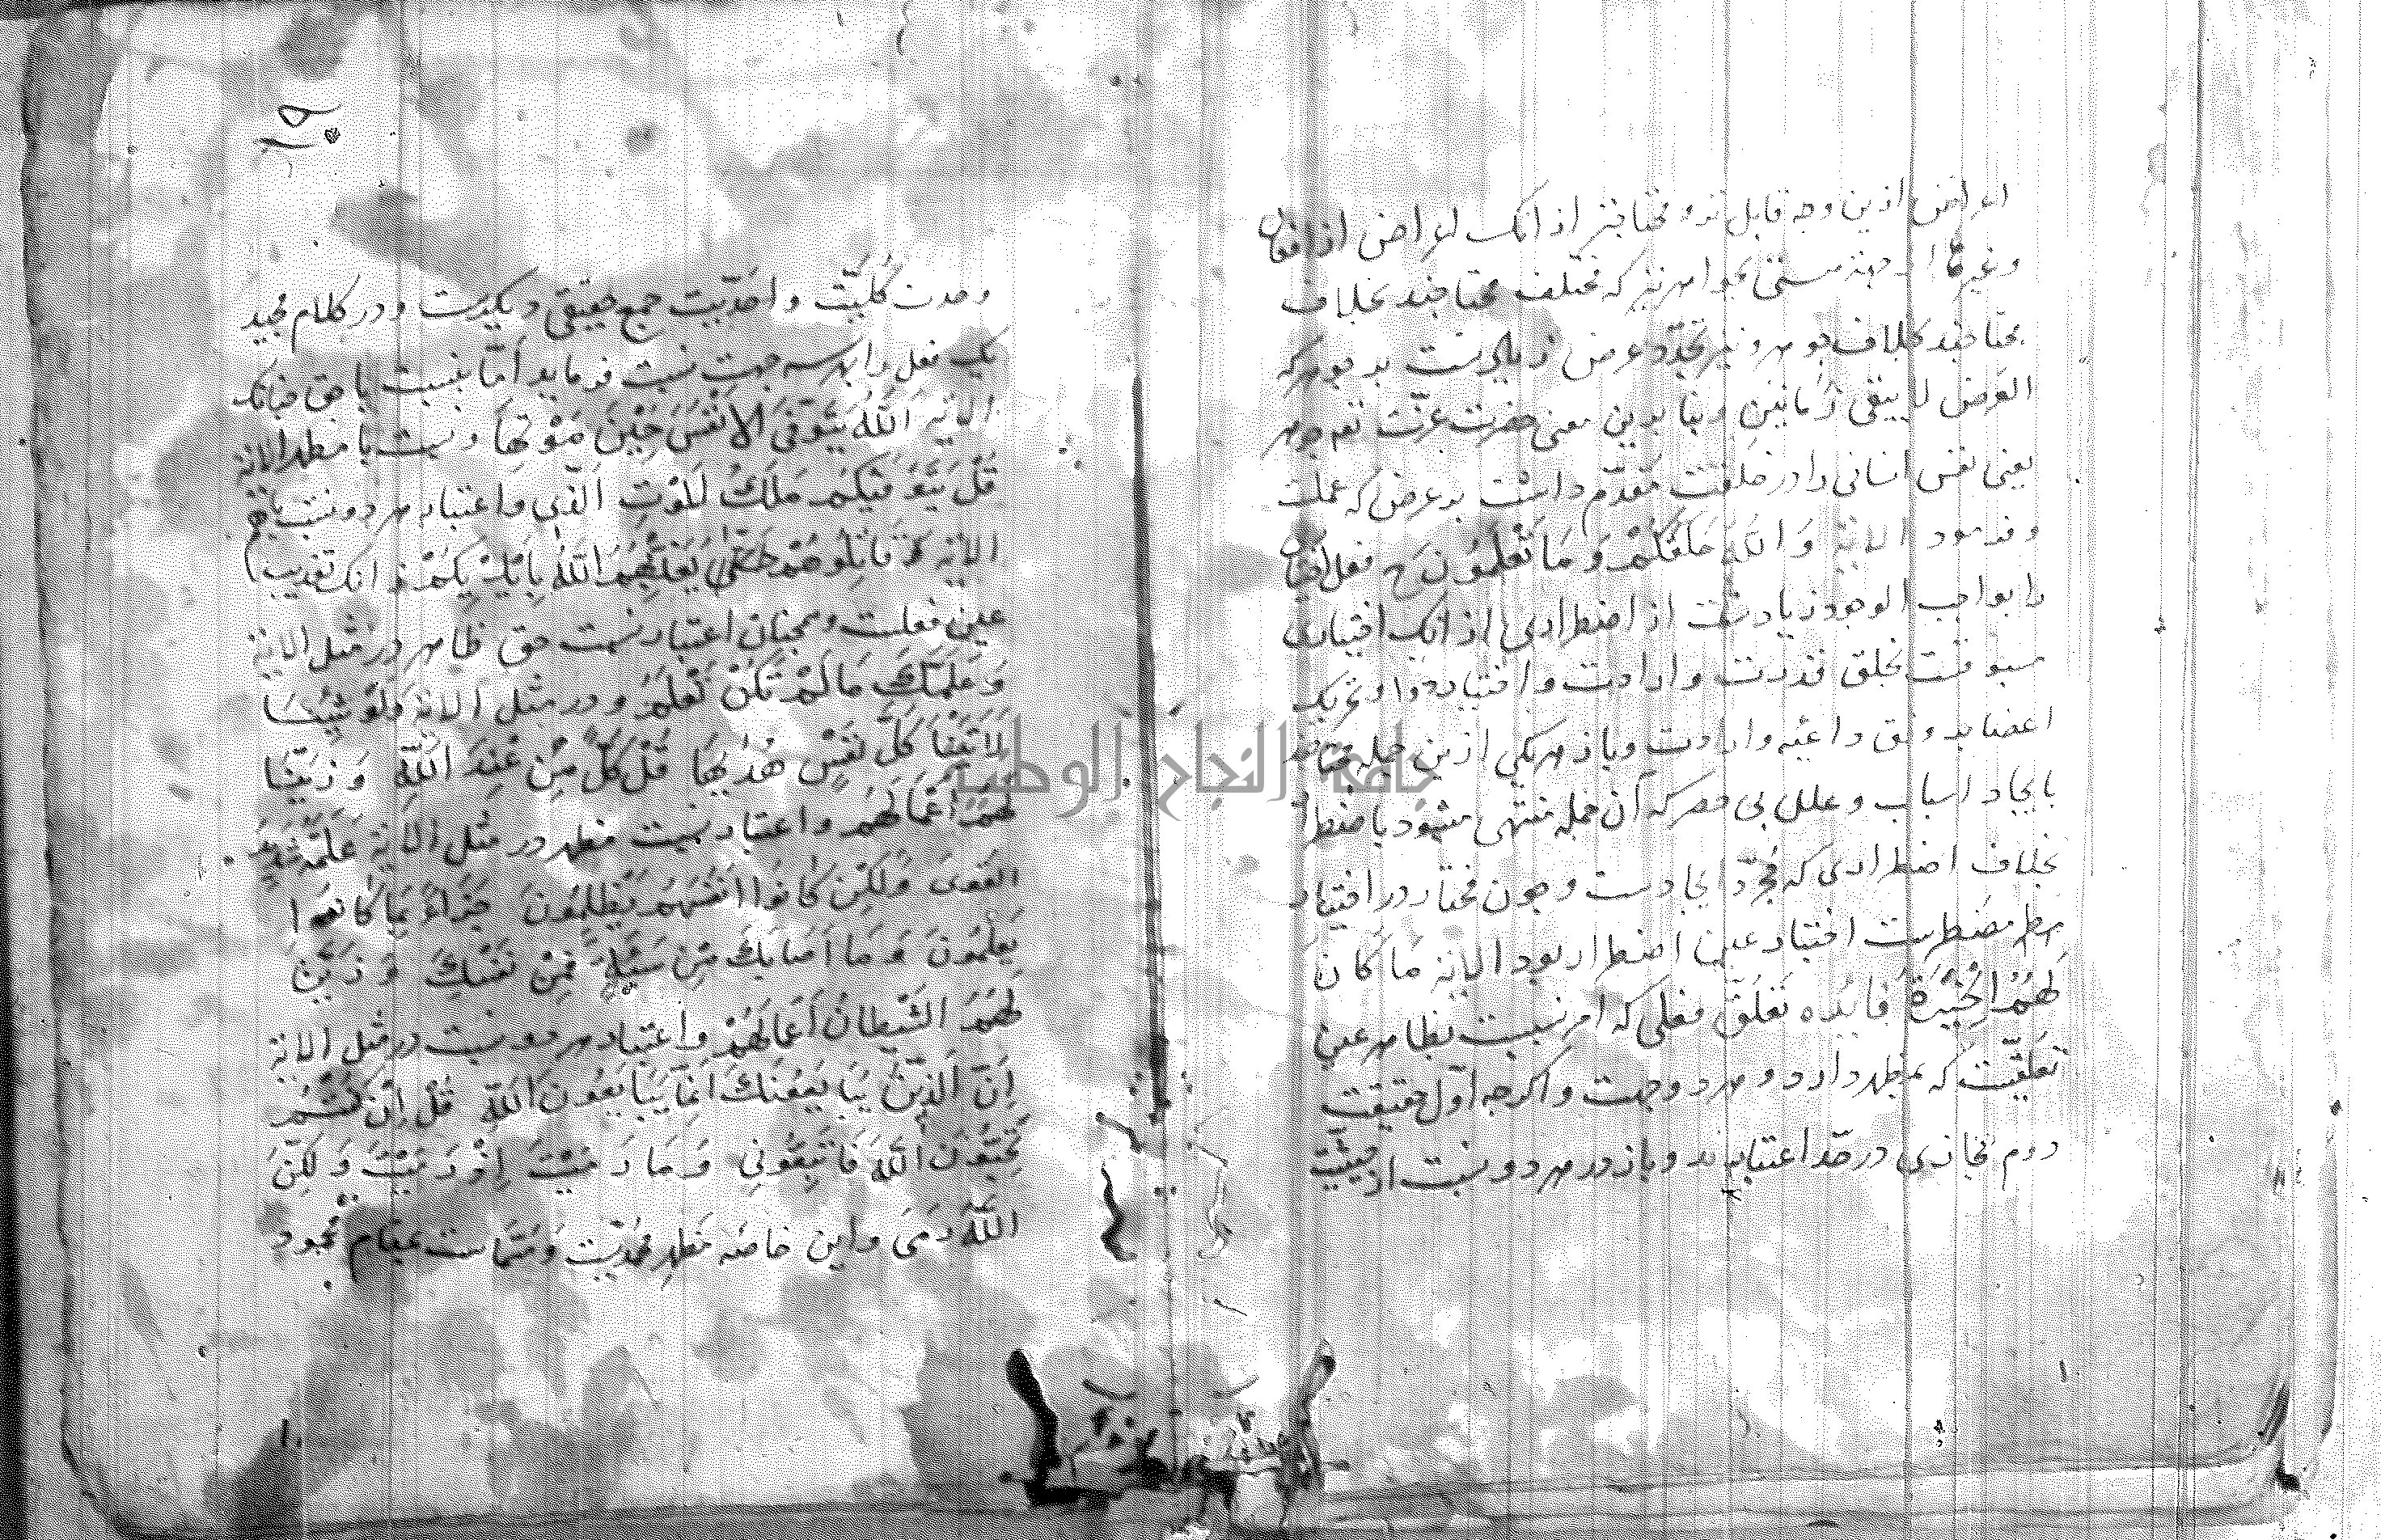 اعراض ازین وجه قابل‌تر و محتاجتر از انک اعراض از افعال
وغیرها از جهة مستغنی بجواهر نیز که مختلف محتاجند بخلاف
محتاجند بخلاف جوهر و نیز تجدد عرض زیادتست بر جوهر که
العرض لا یبقی زمانین وبنا برین معنی حضرت عزت نفه جوهر
یعنی نفس انسانی را در خلقت مقدم داشت بر عرض که عملت
وفرمود الایة وَاللّٰه خَلَقَكُمْ وَمَا تَعْلَمُونَ فعل اختیاری
را بواجب الوجود زیادتست از اضطراری از انک اختیاری
مسبوقست بخلق قدرت وارادت واختیار وتحریک
اعضا بر وفق داعیه وارادت وباز هریکی ازین جمله محتاجند
بایجاد اسباب وعلل بی حصر که آن جمله منتهی میشود باضطرار
بخلاف اضطراری که مجرّد ایجادست وجون مختار در اختیار
مضطرست اختیار عین اضطرار بود الایة مَا كَانَ
لَهُمُ الْخِيَرَةُ فایده تعلّق فعلی که امر نسبیت بظاهر عین
تعلقیت که بمظهر دارد وهر دو جهت واکرجه اول حقیقت
دوم مجازی در حد اعتبارند وباز در هر دو نسبت از حیثیت
وحدت کلیّت واحدیّت جمع حقیقی دیکرست ودر کلام مجید
یک فعل را بهر سه جهت نسبت فرماید امّا نسبت با حق جنانک
الایه اللّٰهُ يَتَوَفَّى الْأَنْفُسَ حِينَ مَوْتِهَا ونسبت با مظهر الایة
قُلْ يَتَوَفَّيكُمْ مَلَكُ الْمَوْتِ الَّذِي واعتبار هر دو نسبت با جمع
الایه قَاتِلُوهُمْ يُعَذِّبْهُمُ اللّٰهُ بِأَيْدِيكُمْ زانک تعذیب
عین فعلست وهمجنان اعتبار نسبت حق ظاهر در مثل الایة
وَعَلَّمَكَ مَا لَمْ تَكُنْ تَعْلَمُ ودر مثل الایة وَلَوْ شِئْنَا
لَآتَيْنَا كُلَّ نَفْسٍ هُدَيهَا قُلْ كُلٌّ مِنْ عِنْدِ اللّٰهِ وَزَيَّنَّا
لَهُمْ أَعْمَالَهُمْ واعتبار نسبت مظهر در مثل الایة عَلَّمَهُ شَدِيدُ
الْقُوَى وَلَكِنْ كَانُوا أَنْفُسَهُمْ يَظْلِمُونَ جَزَاءً بِمَا كَانُوا
يَعْلَمُونَ وَمَا أَصَابَكَ مِنْ سَيِّئَةٍ فَمِنْ نَفْسِكَ وَزَيَّنَ
لَهُمُ الشَّيْطَانُ أَعْمَالَهُمْ واعتبار هر دو نسبت در مثل الایة
إِنَّ الَّذِينَ يُبَايِعُونَكَ إِنَّمَا يُبَايِعُونَ اللّٰهَ قُلْ إِنْ كُنْتُمْ
تُحِبُّونَ اللّٰهَ فَاتَّبِعُونِي وَمَا رَمَيْتَ إِذْ رَمَيْتَ وَلَكِنَّ
اللّٰهَ رَمَى واین خاصه مظهر محمدیّت بمقام محمود
جامعة النجاح الوطنية